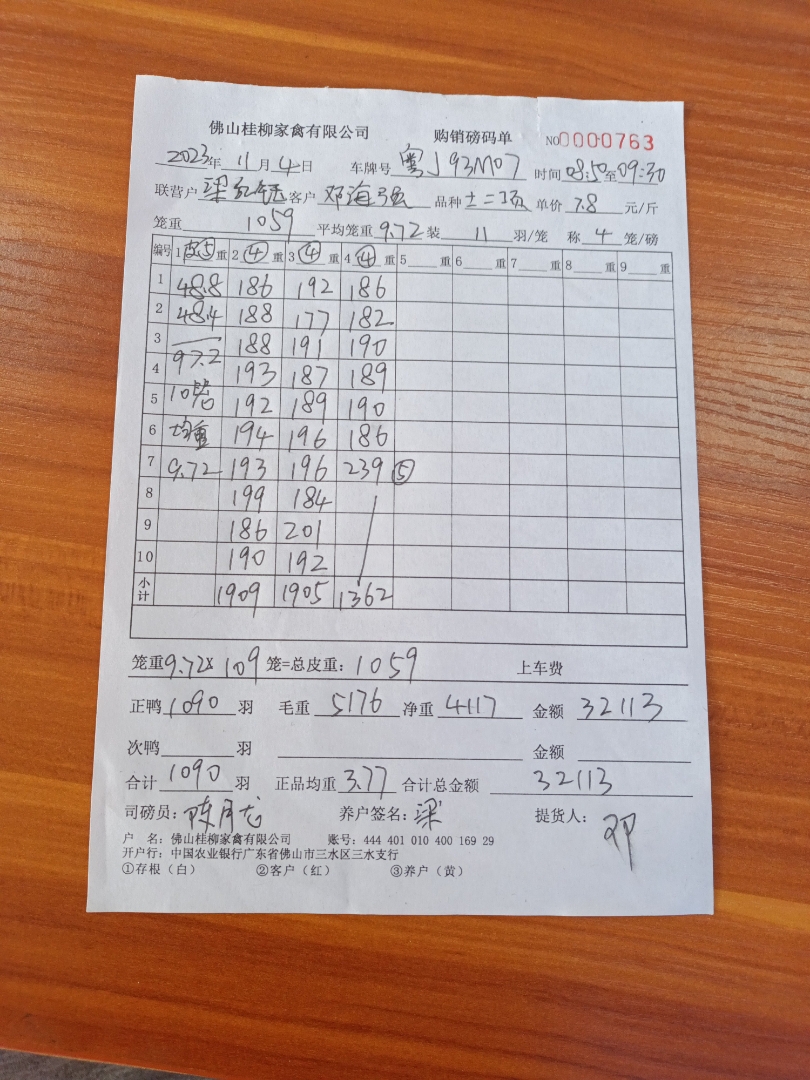 佛山桂柳家禽有限公司 购销磅码单 NO0000763
2023年 11月 4日 车牌号 粤J93M07 时间 08:50至09:30
联营户 梁 客户 邓海强 品种 土二项 单价 7.8 元/斤
笼重 1059 平均笼重 9.72 装 11 羽/笼 称 4 笼/磅
编号 1 皮⑤ 重 2 ④ 重 3 ④ 重 4 ④ 重 5 重 6 重 7 重 8 重 9 重
1 48.8 186 192 186
2 48.4 188 177 182
3 188 191 190
97.2
4 193 187 189
5 10笼 192 189 190
6 均重 194 196 186
7 9.72 193 196 239 ⑤
8 199 184
9 186 201
10 190 192
小计 1909 1905 1362
笼重9.72x 109 笼=总皮重：1059 上车费
正鸭 1090 羽 毛重 5176 净重 4117 金额 32113
次鸭 羽 金额
合计 1090 羽 正品均重 3.77 合计总金额 32113
司磅员：陈月龙 养户签名：梁 提货人：邓
户 名：佛山桂柳家禽有限公司 账号：444 401 010 400 169 29
开户行：中国农业银行广东省佛山市三水区三水支行
①存根（白） ②客户（红） ③养户（黄）